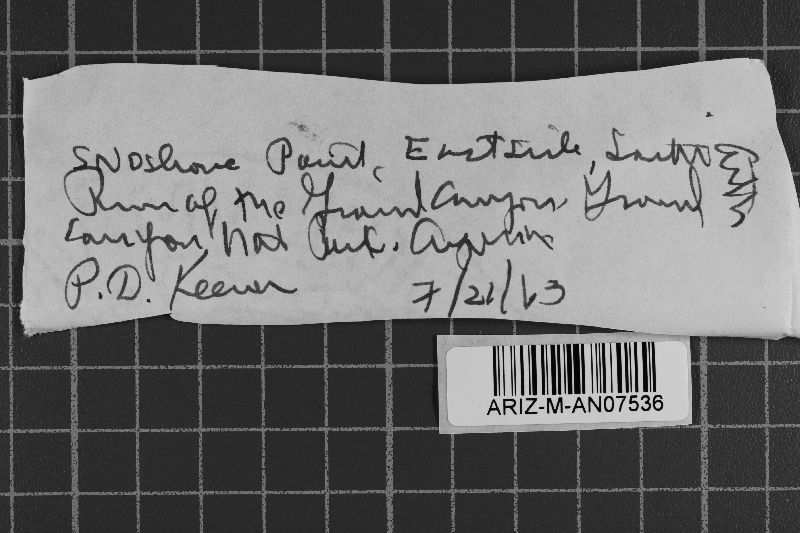 Shoshone Point, East Side, South
Rim of the Grand Canyon, Grand
Canyon Nat Park. Arizona
P.D. Keener
7/21/63
ARIZ-M-AN07536